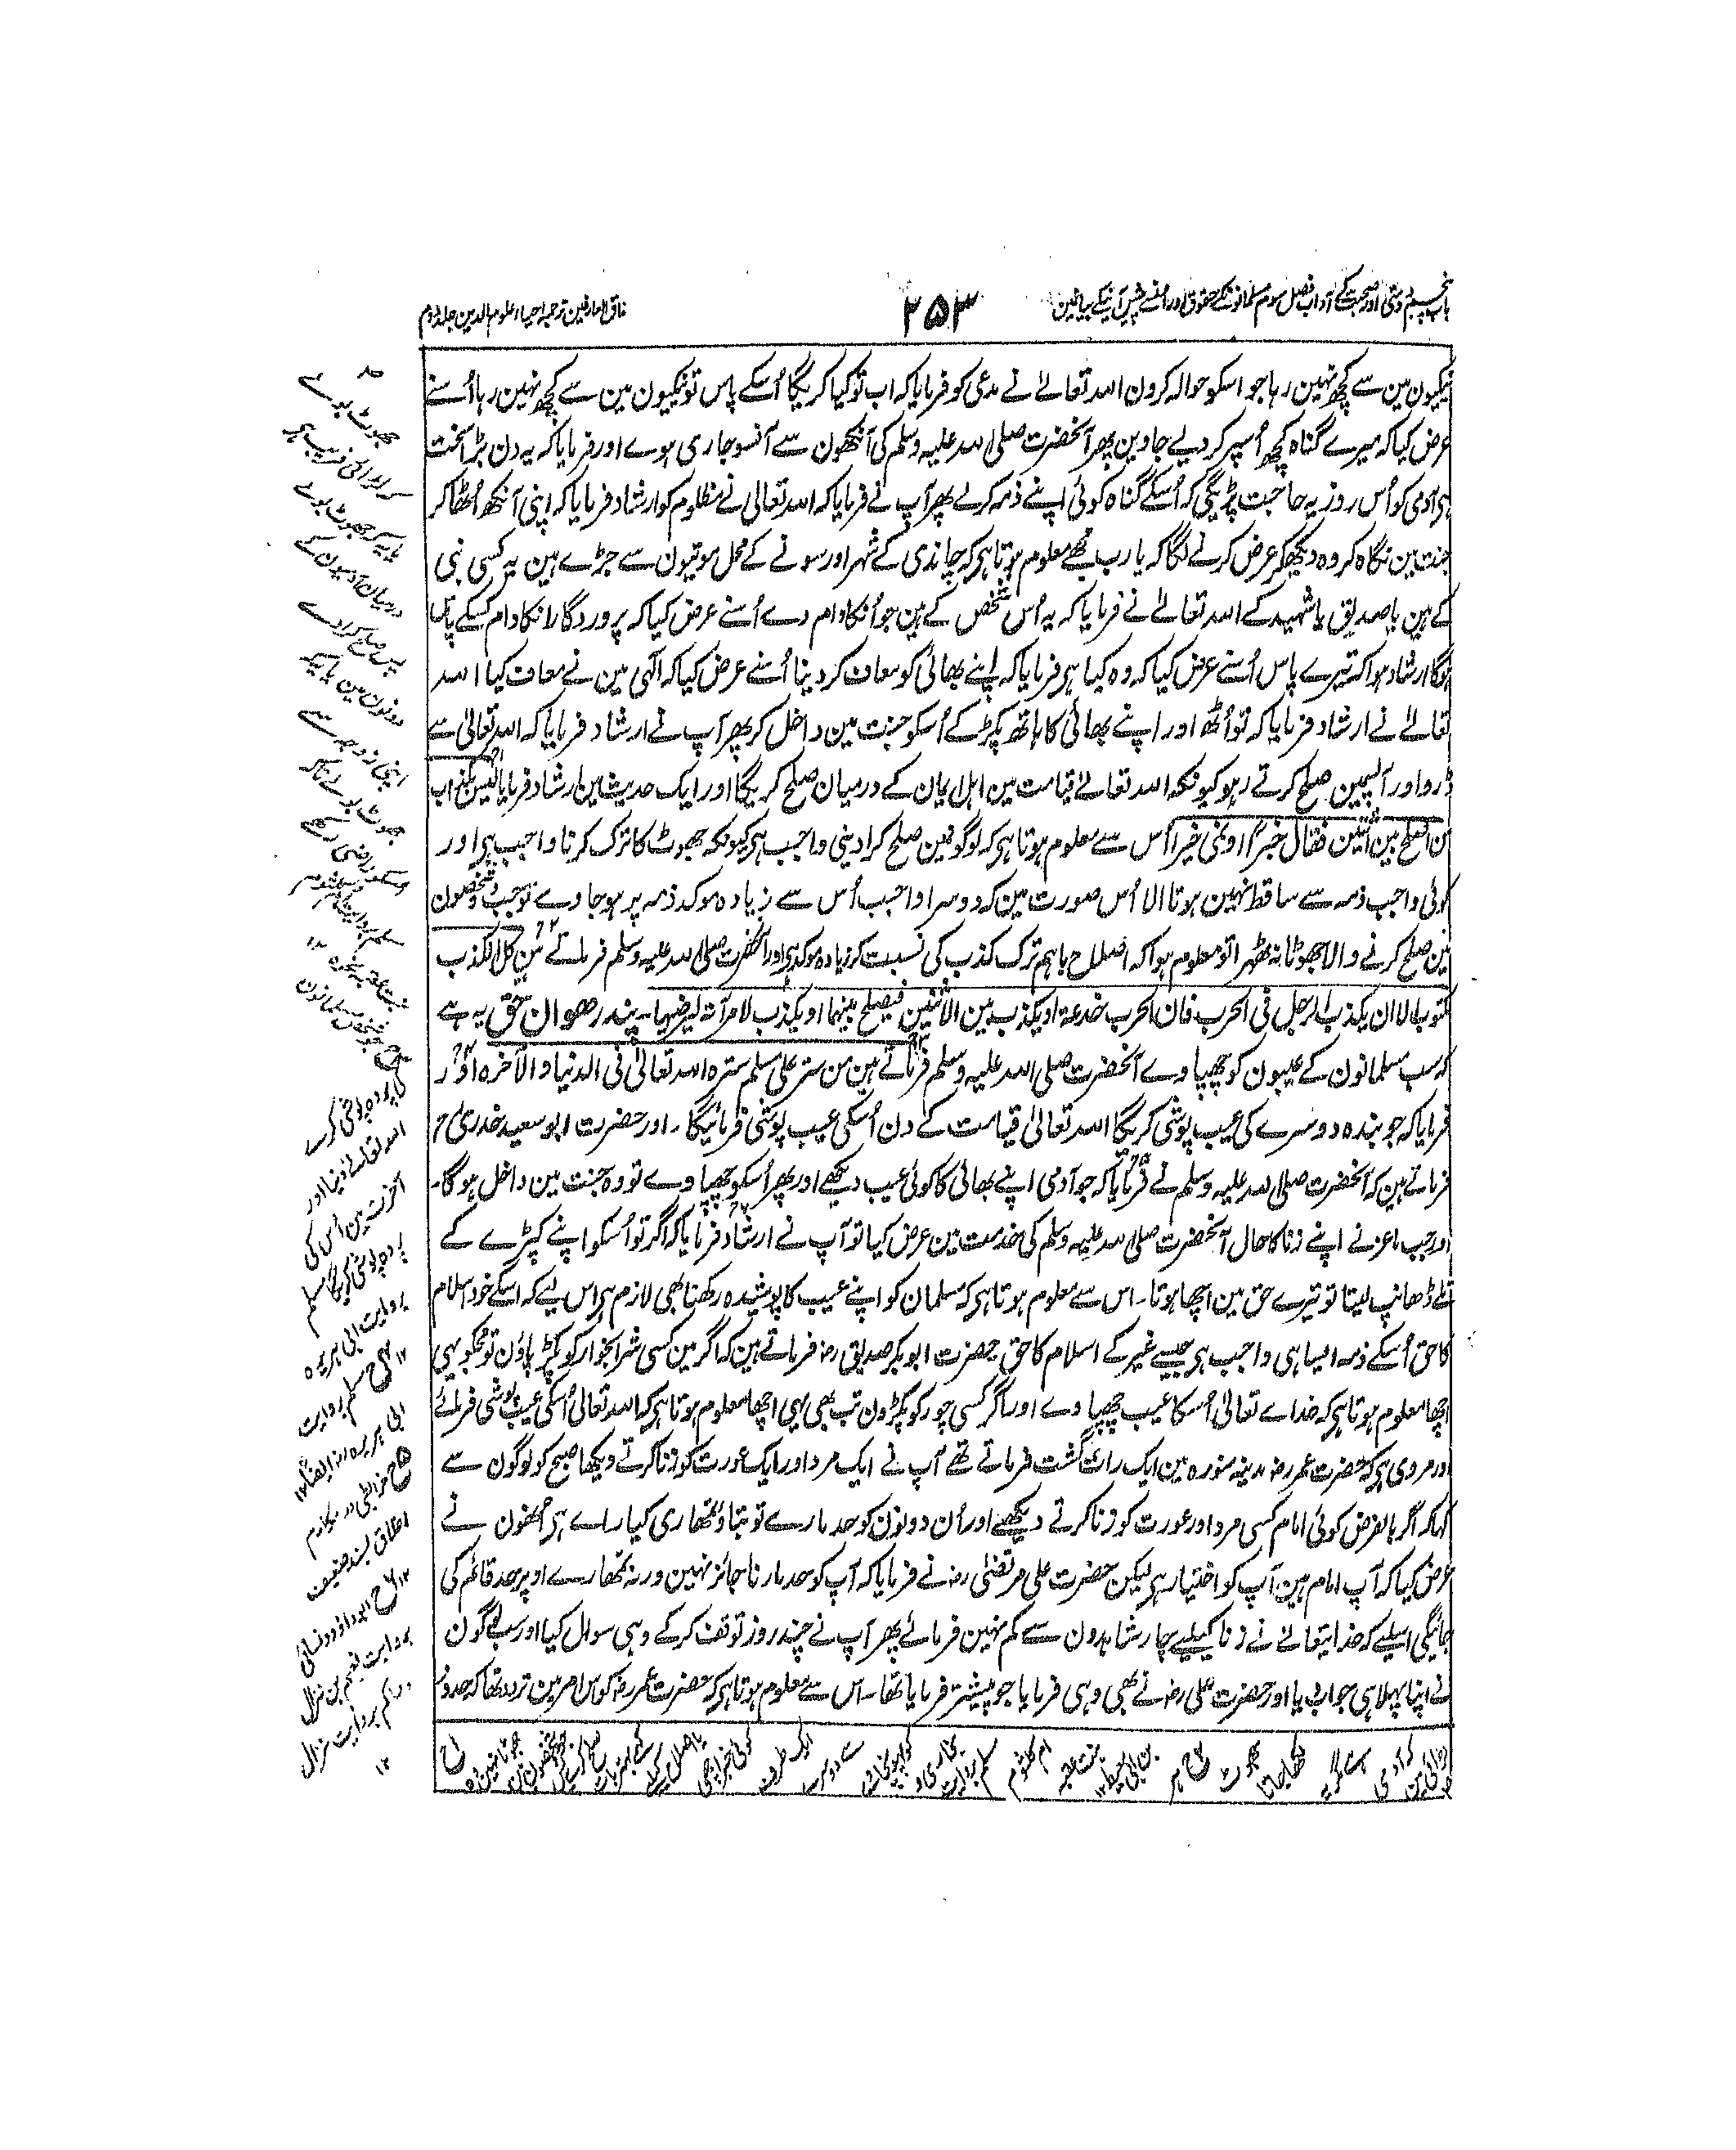 باب پنجم دوستی اور صحبت کے آداب فصل سوم مسلمانونکے حقوق اور انسے پیش آنیکے بیانمین
۲۵۳
مذاق العارفین ترجمہ احیاء علوم الدین جلد دوم
نیکیون مین سے کچھ نہین رہا جو اسکو حوالہ کرون اللہ تعالےٰ نے مدعی کو فرمایا کہ اب تو کیا کریگا اُسکے پاس تو نیکیون مین سے کچھ نہین رہا اُسنے
عرض کیا کہ میرے گناہ کچھ اُسپر کر دیے جاوین پھر آنحضرت صلی اللہ علیہ وسلم کی آنکھون سے آنسو جاری ہوے اور فرمایا کہ یہ دن بڑا سخت
ہی آدمی کو اُس روز یہ حاجت پڑیگی کہ اُسکے گناہ کوئی اپنے ذمہ کرلے پھر آپ نے فرمایا کہ اللہ تعالیٰ نے مظلوم کو ارشاد فرمایا کہ اپنی آنکھ اُٹھا کر
جنت مین نگاہ کر وہ دیکھکر عرض کرنے لگا کہ یا رب مجھے معلوم ہوتا ہی کہ چاندی کے شہر اور سونے کے محل موتیون سے جڑے ہین یہ کسی نبی
کے ہین یا صدیق یا شہید کے اللہ تعالےٰ نے فرمایا کہ یہ اُس شخص کے ہین جو اُنکا دام دے اُسنے عرض کیا کہ پروردگار انکا دام کسکے پاس
ہوگا ارشاد ہوا کہ تیرے پاس اُسنے عرض کیا کہ وہ کیا ہی فرمایا کہ اپنے بھائی کو معاف کر دینا اُسنے عرض کیا کہ الٰہی مین نے معاف کیا اللہ
تعالےٰ نے ارشاد فرمایا کہ تو اُٹھ اور اپنے بھائی کا ہاتھ پکڑ کے اُسکو جنت مین داخل کر پھر آپ نے ارشاد فرمایا کہ اللہ تعالیٰ سے
ڈرو اور آپسمین صلح کرتے رہو کیونکہ اللہ تعالےٰ قیامت مین اہل ایمان کے درمیان صلح کریگا اور ایک حدیث مین ارشاد فرمایا لیس بکذاب
من اصلح بین اثنین فقال خیرا او نمی خیرا اس سے معلوم ہوتا ہی کہ لوگونمین صلح کرا دینی واجب ہی کیونکہ جھوٹ کا ترک کرنا واجب ہی اور
کوئی واجب ذمہ سے ساقط نہین ہوتا الا اُس صورت مین کہ دوسرا واجب اُس سے زیادہ موکد ذمہ پر ہو جاوے تو جب دو شخصون
مین صلح کرنے والا جھوٹا نہ ٹھہرا تو معلوم ہوا کہ اصلاح باہم ترک کذب کی نسبت کر زیادہ موکد ہی اور آنحضرت صلی اللہ علیہ وسلم فرماتے ہین کل الکذب
مکتوب الا ان یکذب الرجل فی الحرب فان الحرب خدعة او یکذب بین الاثنین فیصلح بینهما او یکذب لامرأته لیرضیها۔ پندرھوان حق یہ ہے
کہ سب مسلمانون کے عیبون کو چھپاوے آنحضرت صلی اللہ علیہ وسلم فرماتے ہین من ستر علی مسلم سترہ اللہ تعالیٰ فی الدنیا والآخرہ اور
فرمایا کہ جو بندہ دوسرے کی عیب پوشی کریگا اللہ تعالیٰ قیامت کے دن اُسکی عیب پوشی فرمائیگا۔ اور حضرت ابو سعید خدری رض
فرماتے ہین کہ آنحضرت صلی اللہ علیہ وسلم نے فرمایا کہ جو آدمی اپنے بھائی کا کوئی عیب دیکھے اور پھر اُسکو چھپاوے تو وہ جنت مین داخل ہوگا۔
اور جب ماعز نے اپنے زنا کا حال آنحضرت صلی اللہ علیہ وسلم کی خدمت مین عرض کیا تو آپ نے ارشاد فرمایا کہ اگر تو اُسکو اپنے کپڑے کے
تلے ڈھانپ لیتا تو تیرے حق مین اچھا ہوتا۔ اس سے معلوم ہوتا ہی کہ مسلمان کو اپنے عیب کا پوشیدہ رکھنا بھی لازم ہی اس لیے کہ اسکے خود اسلام
کا حق اُسکے ذمہ ایسا ہی واجب ہی جیسے غیر کے اسلام کا حق حضرت ابو بکر صدیق رض فرماتے ہین کہ اگر مین کسی شرابخوار کو پکڑ پاؤن تو مجکو یہی
اچھا معلوم ہوتا ہی کہ خداے تعالیٰ اُسکا عیب چھپاوے اور اگر کسی چور کو پکڑون تب بھی یہی اچھا معلوم ہوتا ہی کہ اللہ تعالیٰ اُسکی عیب پوشی فرمائے
اور مروی ہی کہ حضرت عمر رض مدینہ منورہ مین ایک رات گشت فرماتے تھے آپ نے ایک مرد اور ایک عورت کو زنا کرتے دیکھا صبح کو لوگون سے
کہا کہ اگر بالفرض کوئی امام کسی مرد اور عورت کو زنا کرتے دیکھے اور اُن دونون کو حد مارے تو بتاؤ تمھاری کیا راے ہی اُنھون نے
عرض کیا کہ آپ امام ہین آپ کو اختیار ہی لیکن حضرت علی مرتضیٰ رض نے فرمایا کہ آپ کو حد مارنا جائز نہین ورنہ تمھارے اوپر حد قائم کی
جائیگی اسلیے کہ خدایتعالےٰ نے زنا کیلیے چار شاہدون سے کم نہین فرمائے پھر آپ نے چند روز توقف کرکے وہی سوال کیا اور سب لوگون
نے اپنا پہلا ہی جواب دیا اور حضرت علی رض نے بھی وہی فرمایا جو پیشتر فرمایا تھا۔ اس سے معلوم ہوتا ہی کہ حضرت عمر رض کو اس امر مین تردد تھا کہ حدود
جھوٹ بولے
یا یہ کہ جھوٹ بولے
درمیان آدمیون کے
پس صلح کرا دے
دونون مین یا یہ کہ
اپنی زوجہ سے
جھوٹ بولے تاکہ
پردہ پوشی کرے
اللہ تعالےٰ دنیا اور
آخرت مین اُس کی
پردہ پوشی کریگا مسلم
بروایت ابی ہریرہ
مسلم بروایت
ابی ہریرہ رض ایضاً ۱۲
اخلاق بسند ضعیف
ابو داؤد و نسائی
بروایت نعیم بن ہزال
و حاکم بروایت ہزال
۱۲